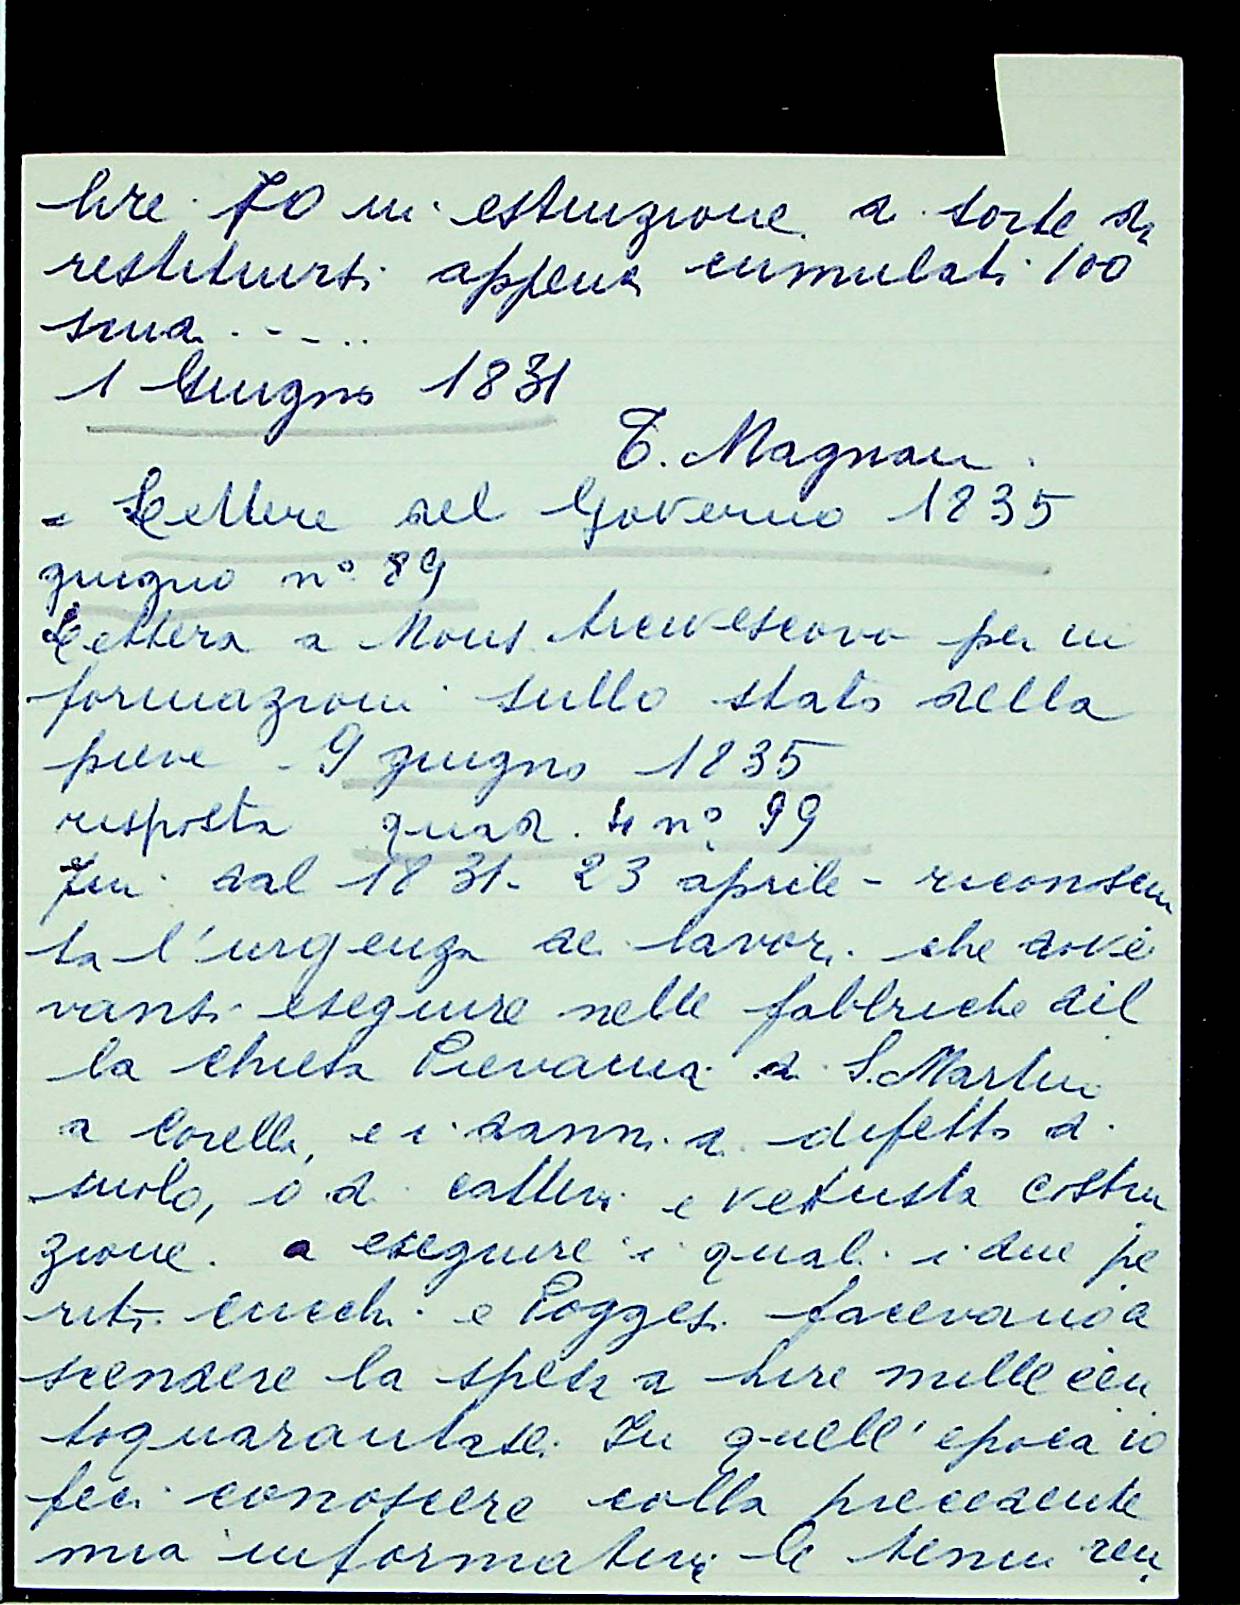 lire 70 in estinzione di sorte da
restituirsi appena cumulati 100
scudi . - - ..
1 Giugno 1831
T. Magnani.
= Lettere del Governo 1835
giugno n° 89
Lettera a Mons. Arcivescovo per in
formazioni sullo stato della
pieve - 9 giugno 1835
risposta quad. 4 n° 99
Fin dal 1831 - 23 aprile - riconosciu
ta l'urgenza dei lavori che dove
vansi eseguire nelle fabbriche del
la chiesa Pievania di S. Martino
a Corella, e i danni a difetto di
suolo, o di cattiva e vetusta costru
zione. a eseguire i quali i due pe
riti Cecchi e Poggesi facevano a
scendere la spesa a lire mille cen
toquarantasei. In quell'epoca io
feci conoscere colla precedente
mia informativa le tenui ren